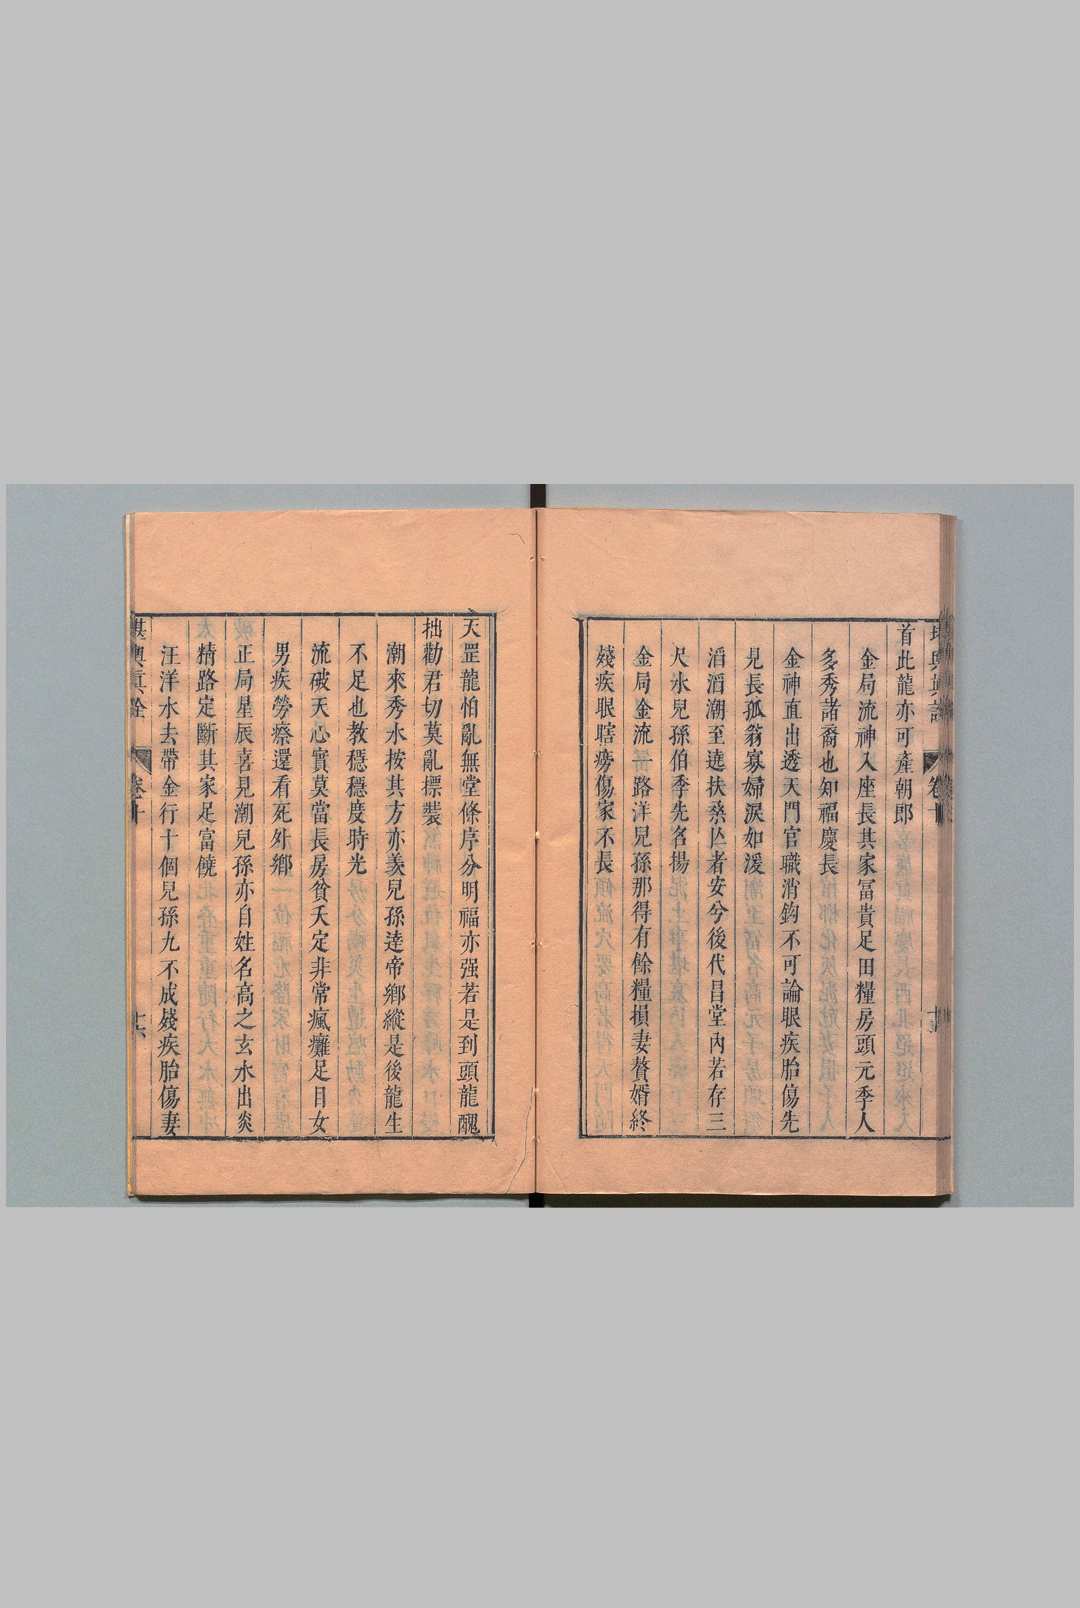 首此龍亦可產朝郎
金局流神入座長其家冨貴足田糧房頭元季人
多秀諸裔也知福慶長
金神直出透天門官職消鈎不可論眼疾胎傷先
見長孤翁寡婦淚如湲
滔滔潮至遶扶桑丘者安兮後代昌堂內若存三
尺水兒孫伯季先名揚
金局金流一路洋兒孫那得有餘糧損妻贅婿終
殘疾眼瞎癆傷家不長
天罡龍怕亂無堂條序分明福亦强若是到頭龍醜
拙勸君切莫亂摽裝
潮來秀水按其方亦羡兒孫達帝鄉縱是後龍生
不足也教穩穩度時光
流破天心實莫當長房貧夭定非常瘋癱足目女
男疾勞瘵還看死外鄉
正局星辰喜見潮兒孫亦自姓名高之玄水出炎
精路定斷其家足富饒
汪洋水去帶金行十個兒孫九不成殘疾胎傷妻
堪輿眞詮
卷十
十六